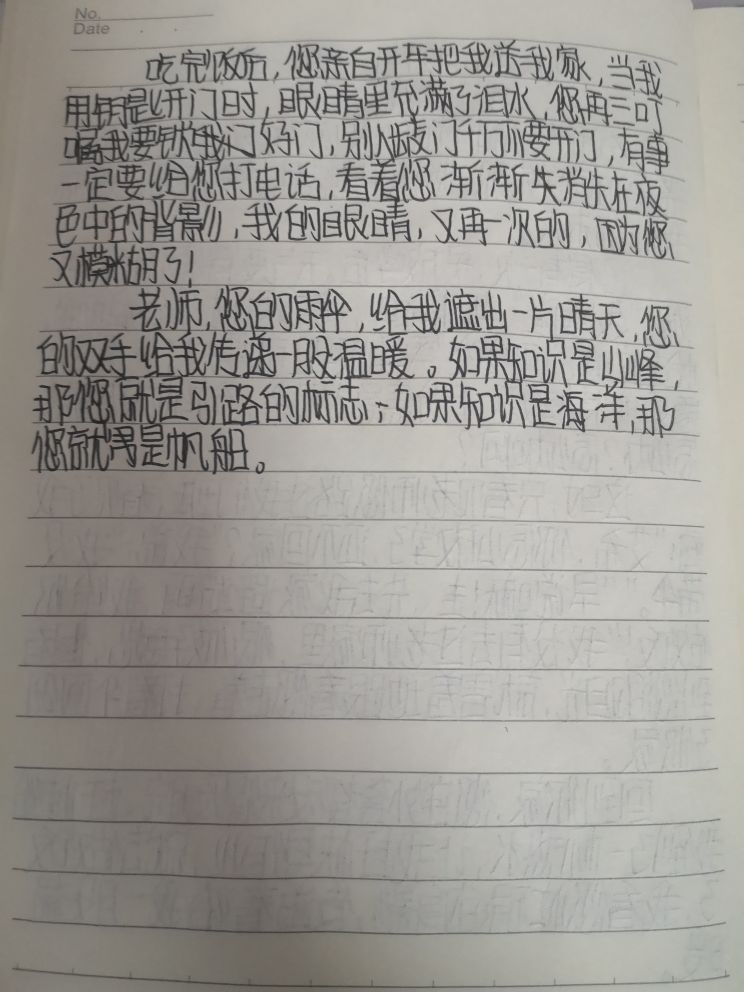 No.
Date
吃完饭后，您亲自开车把我送我家，当我
用钥匙开门时，眼睛里充满了泪水，您再三叮
嘱我要锁我门好门，别人敲门千万不要开门，有事
一定要给您打电话，看着您渐渐失消失在夜
色中的背影，我的眼睛，又再一次的，因为您，
又模糊了！
老师，您的雨伞，给我遮出一片晴天，您、
的双手给我传递一股温暖。如果知识是山峰，
那您就是引路的标志；如果知识是海洋，那
您就是帆船。